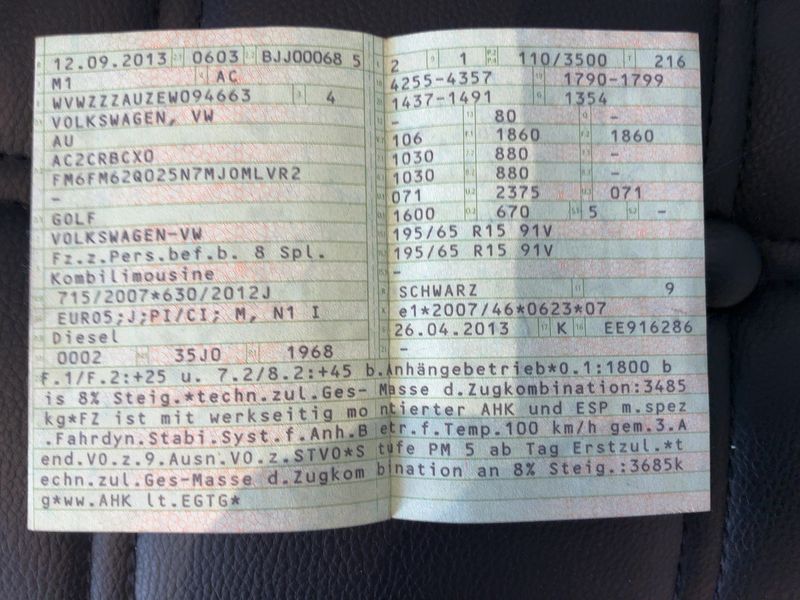 12.09.2013 0603 BJJ00068 5
M1 AC
WVWZZZAUZEW094663 4
VOLKSWAGEN, VW
AU
AC2CRBCX0
FM6FM62Q025N7MJOMLVR2
-
GOLF
VOLKSWAGEN-VW
Fz.z.Pers.bef.b. 8 Spl.
Kombilimousine
715/2007*630/2012J
EURO5;J;PI/CI; M, N1 I
Diesel
0002 35J0 1968
2 1 110/3500 216
4255-4357 1790-1799
1437-1491 1354
- 80 -
106 1860 1860
1030 880 -
1030 880 -
071 2375 071
1600 670 5 -
195/65 R15 91V
195/65 R15 91V
-
SCHWARZ 9
e1*2007/46*0623*07
26.04.2013 K EE916286
-
F.1/F.2:+25 u. 7.2/8.2:+45 b.Anhängebetrieb*0.1:1800 b
is 8% Steig.*techn.zul.Ges-Masse d.Zugkombination:3485
kg*FZ ist mit werkseitig montierter AHK und ESP m.spez
.Fahrdyn.Stabi.Syst.f.Anh.Betr.f.Temp.100 km/h gem.3.A
end.VO.z.9.Ausn.VO.z.STVO*Stufe PM 5 ab Tag Erstzul.*t
echn.zul.Ges-Masse d.Zugkombination an 8% Steig.:3685k
g*ww.AHK lt.EGTG*